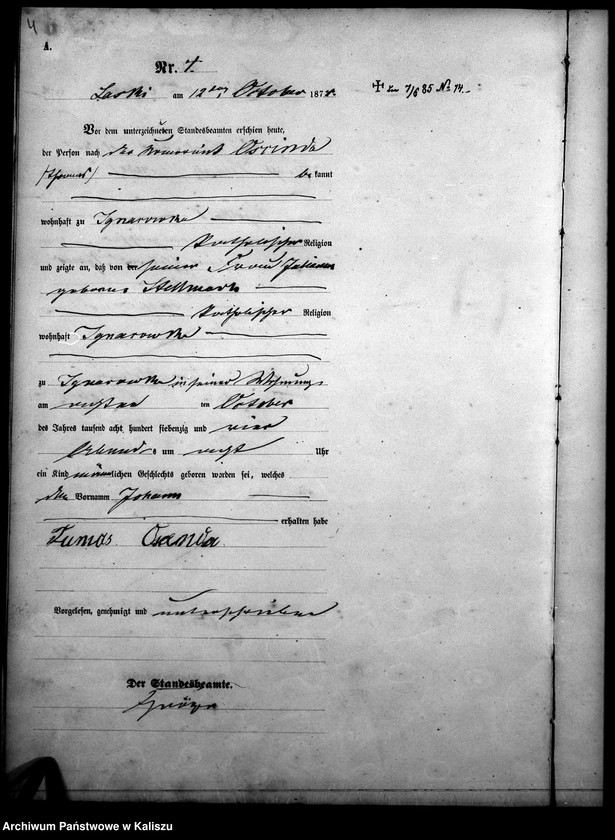 4
A.
Nr. 4.
Laski am 12ten October 1874.
✝ den 7/6 85 No 14.
Vor dem unterzeichneten Standesbeamten erschien heute,
der Person nach der
(Thomas) bekannt
wohnhaft zu Ignarowka
katholischer Religion
und zeigte an, daß von der seiner Frau
geborne
katholischer Religion
wohnhaft Ignarowka
zu Ignarowka in seiner Wohnung
am achten ten October
des Jahres tausend acht hundert siebenzig und vier
Abends um acht Uhr
ein Kind männlichen Geschlechts geboren worden sei, welches
den Vornamen Johann
erhalten habe
Tumas
Vorgelesen, genehmigt und unterschrieben
Der Standesbeamte.
Archiwum Państwowe w Kaliszu